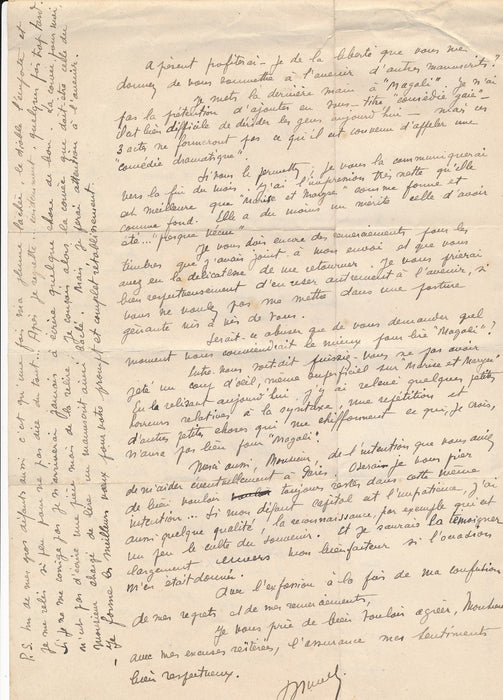 A présent profiterai-je de la liberté que vous me
donnez de vous soumettre à l'avenir d'autres manuscrits ?
Je mets la dernière main à "Magali". Je n'ai
pas la prétention d'ajouter en sous-titre "comédie gaie" -
Il est bien difficile de dérider les gens aujourd'hui - mais ces
3 actes ne formeront pas ce qu'il est convenu d'appeler une
"comédie dramatique".
Si vous le permettez, je vous la communiquerai
vers la fin du mois. J'ai l'impression très nette qu'elle
est meilleure que "Maruse et Maryse" comme forme et
comme fond. Elle a du moins un mérite celle d'avoir
été... "presque vécue"
Je vous dois encore des remerciements pour les
timbres que j'avais joint à mon envoi et que vous
avez eu la délicatesse de me retourner. Je vous prierai
bien respectueusement d'en user autrement à l'avenir, si
vous ne voulez pas me mettre dans une posture
gênante vis à vis de vous.
Serait-ce abuser que de vous demander quel
moment vous conviendrait le mieux pour lire "Magali" ?
Entre-nous soit-dit puissiez-vous ne pas avoir
jeté un coup d'oeil, même superficiel sur Maruse et Maryse
En la relisant aujourd'hui, j'y ai relevé quelques petites
horreurs relatives à la syntaxe, une répétition et
d'autres petites choses qui me chiffonnent ce qui, je crois,
n'aura pas lieu pour "Magali".
Merci aussi, Monsieur, de l'intention que vous aviez
de m'aider éventuellement à Paris. Oserai-je vous prier
de bien vouloir toujours rester dans cette même
intention... Si mon défaut capital est l'impatience, j'ai
aussi quelque qualité, la reconnaissance, par exemple qui est
un peu le culte du souvenir. Et je saurais la témoigner
largement envers mon bienfaiteur si l'occasion
m'en était donnée.
Avec l'expression à la fois de ma confusion
de mes regrets et de mes remerciements,
Je vous prie de bien vouloir agréer, Monsieur
avec mes excuses réitérées, l'assurance mes sentiments
bien respectueux.
P.S. Un de mes gros défauts aussi c'est qu'une fois ma plume lâchée, le diable l'emporte et
je me relis si peu pour ne pas dire du tout... Après je regrette... quelquefois trop tard.
Si je ne me corrige pas je n'arriverai jamais à écrire quelque chose de bon. La corvée pour moi
n'est pas d'écrire une pièce mais de la relire. Je conçois alors la corvée que doit être celle du
monsieur chargé de lire un manuscrit ainsi bâclé. Mais je ferai attention à l'avenir.
- Je forme les meilleurs voeux pour votre prompt et complet rétablissement.